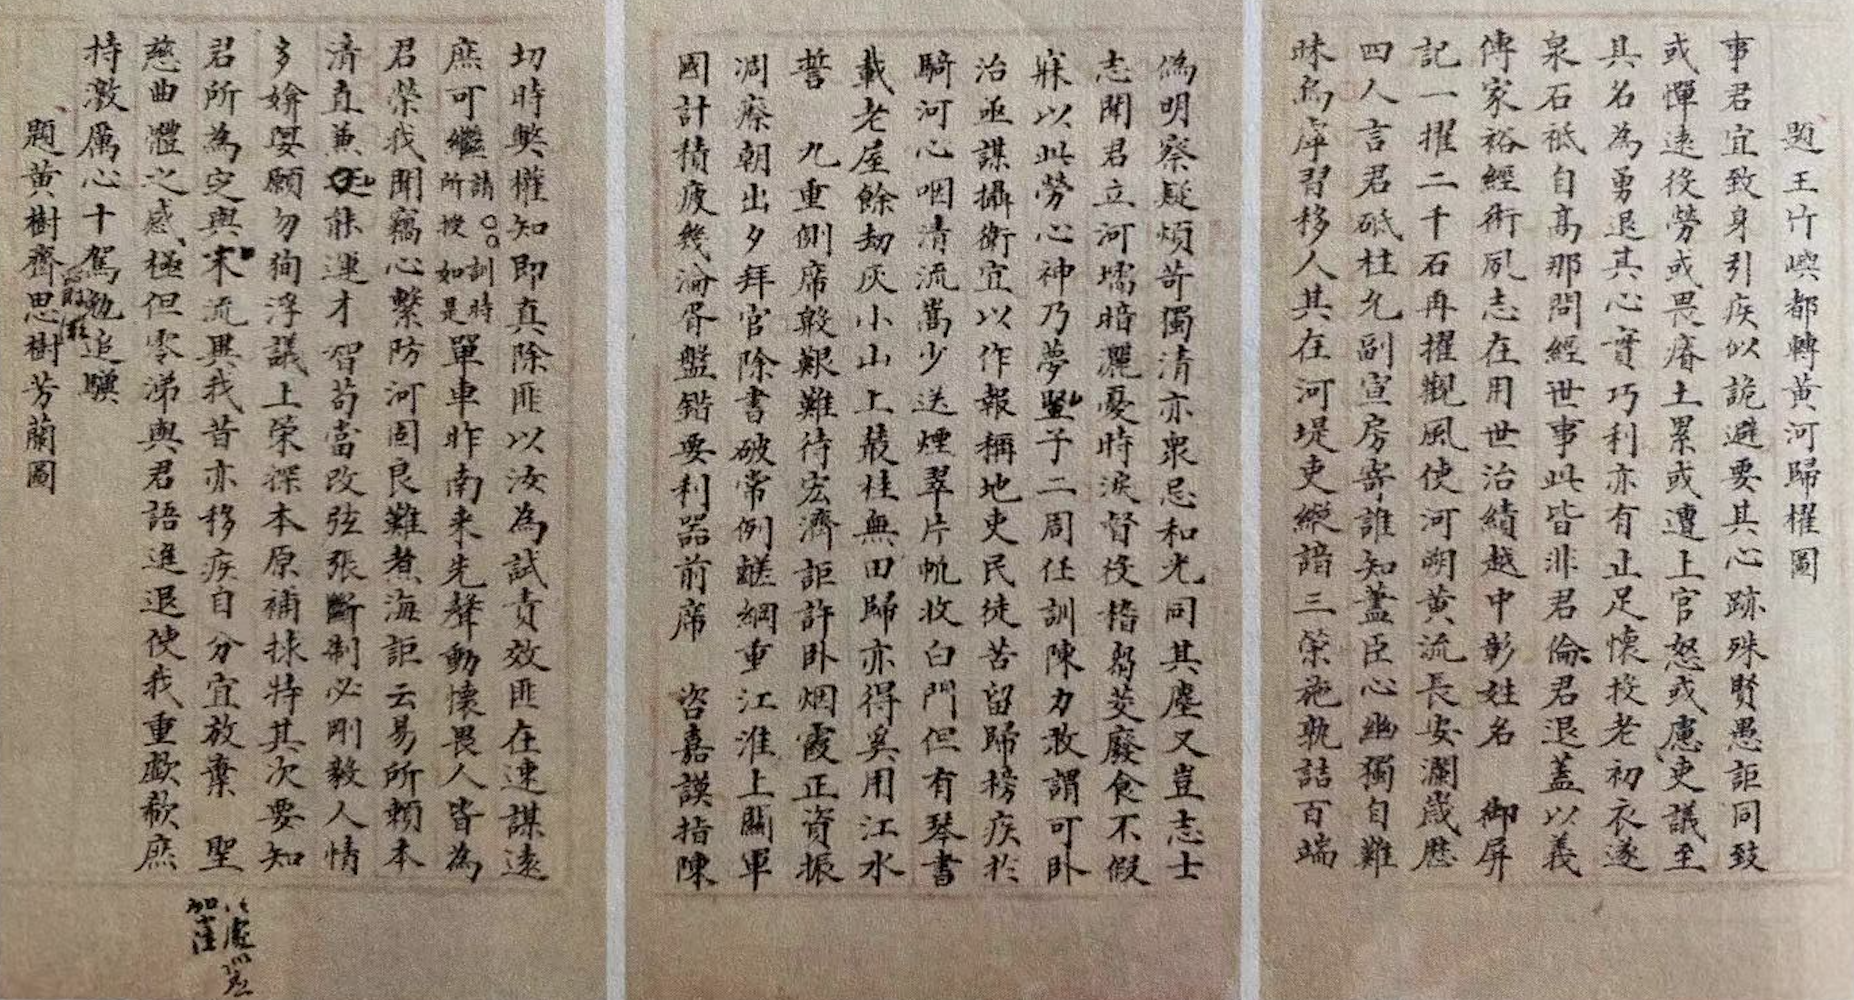 題王竹嶼都轉黃河歸櫂圖
事君宜致身引疾似詭避要其心跡殊賢愚詎同致
或憚遠役勞或畏瘠土累或遭上官怒或慮吏議至
其名為勇退其心實巧利亦有止足懷投老初衣遂
泉石祇自高那問經世事此皆非君倫君退蓋以義
傳家裕經術夙志在用世治績越中彰姓名 御屏
記一擢二千石再擢觀風使河朔黃流長安瀾歲歷
四人言君砥柱允副宣房寄誰知藎臣心幽獨自難
昧為庠習移人其在河堤吏縱諳三策施孰詰百端
偽明察疑煩苛獨清亦衆忌和光同其塵又豈志士
志聞君立河壖暗灑憂時淚督役稽芻茭廢食不假
寐以此勞心神乃夢豎子二周任訓陳力敢謂可卧
治亟謀攝衛宜以作報稱地吏民徒苦留歸榜疾於
騎河心咽清流嵩少送煙翠片帆收白門但有琴書
載老屋餘劫灰小山上叢桂無田歸亦得奚用江水
誓 九重側席殷艱難待宏濟詎許卧烟霞正資振
凋瘵朝出夕拜官除書破常例鹺綱重江淮上關軍
國計積疲幾淪胥盤錯要利器前席 咨嘉謨指陳
切時獘權知即真除匪以汝為試責效匪在速謀遠
庶可繼請訓時所授如是單車昨南來先聲動懷畏人皆為
君榮我聞竊心繫防河固良難煮海詎云易所賴本
清直兼能運才智苟當改弦張斷制必剛毅人情
多媕婀願勿徇浮議上榮探本原補捄特其次要知
君所為定與末流異我昔亦移疾自分宜放棄 聖
慈曲體之感極但零涕與君語進退使我重歔欷庶
持激厲心十駕勉追驥
題黃樹齋思樹芳蘭圖